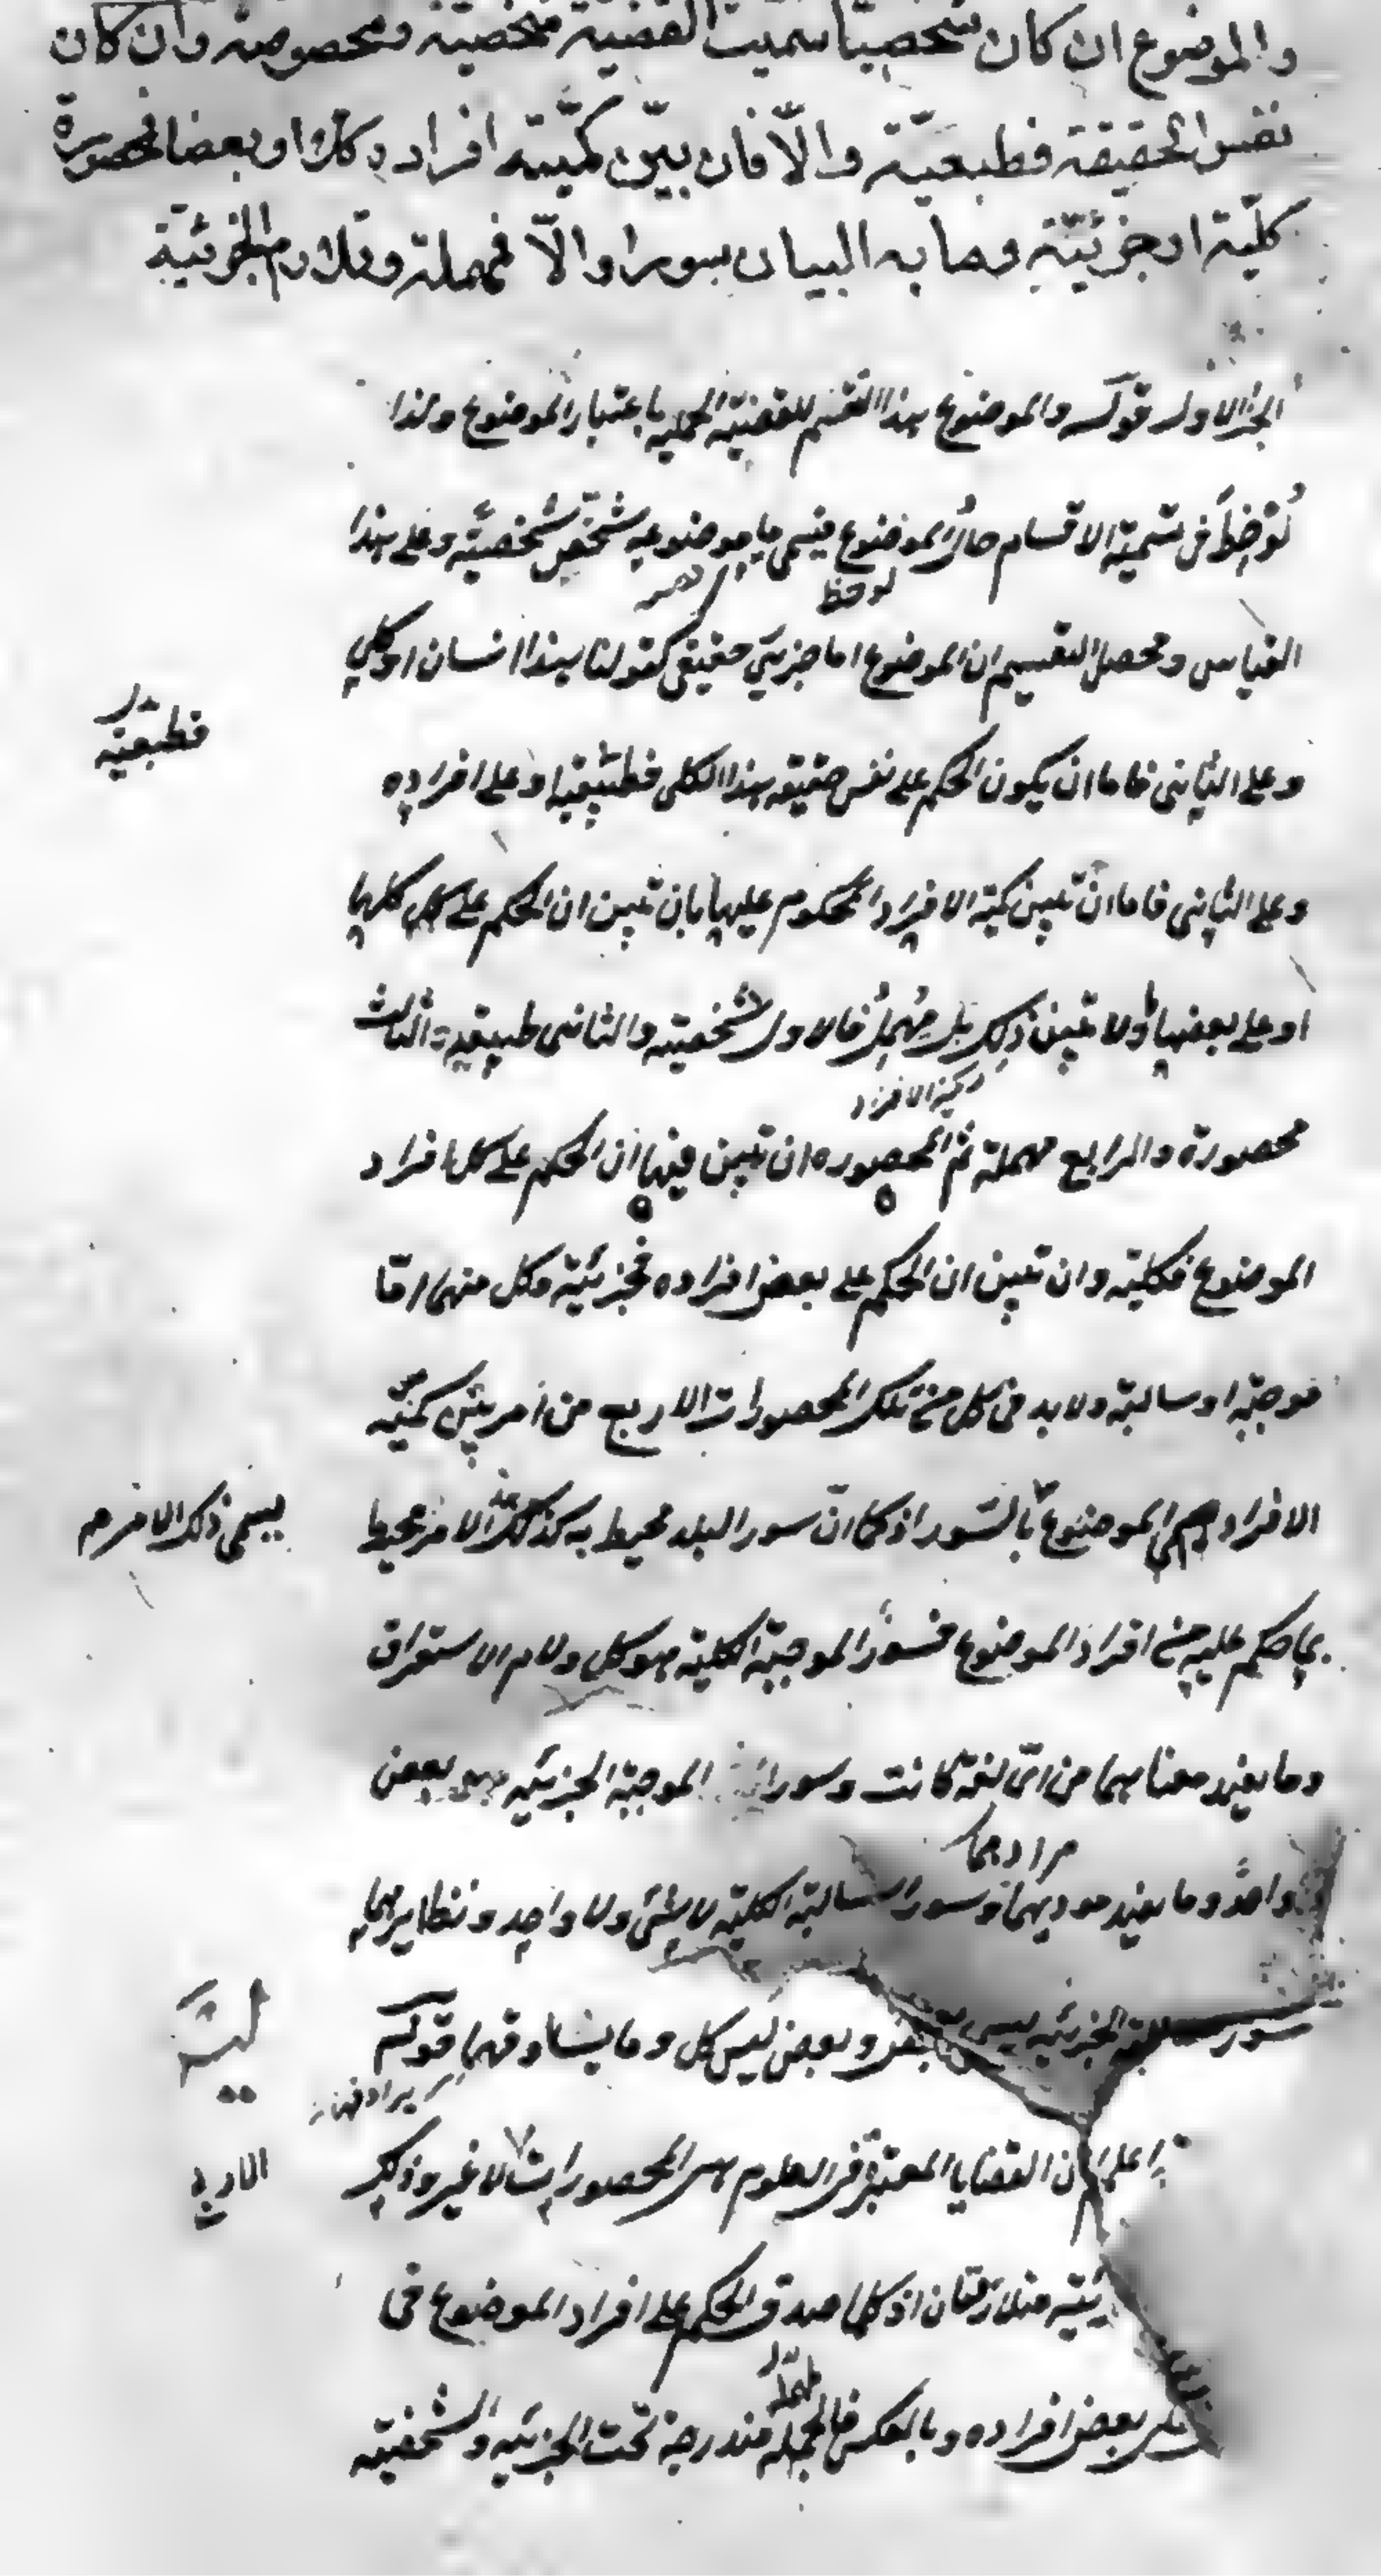 والموضوع ان كان شخصيا سميت القضية شخصية ومخصوصة وان كان
نفس الحقيقة فطبعيّة والّا فان بيّن كميّته افراده كلا او بعضا فمحصورة
كليّة او جزئيّة وما به البيان سورا والّا فمهملة وتلازم الجزئية
الجزء الاول قوله والموضوع هذا التقسيم للقضية الحملية باعتبار الموضوع ولذا
لوحظ فى تسمية الاقسام حال الموضوع فيسمى ما موضوعه شخص شخصية وعلى هذا
لوحظ
القياس ومحصل التقسيم ان الموضوع اما جزئى حقيقى كقولنا هذا انسان او كلى
فطبعية
وعلى الثانى فاما ان يكون الحكم على نفس حقيقة هذا الكلى فطبيعية او على افراده
وعلى الثانى فاما ان تبين كمية الافراد المحكوم عليها بان تبين ان الحكم على كلها
او على بعضها ولا تبين ذلك بل مهمل فالاول شخصية والثانى طبيعية والثالث
كمية الافراد
محصورة والرابع مهملة ثم المحصورة ان تبين فيها ان الحكم على كل افراد
الموضوع فكلية وان تبين ان الحكم على بعض افراده فجزئية وكل منهما امّا
موجبة او سالبة ولا بد فى كل من تلك المحصورات الاربع من امر يبين كميّة
الافراد الموضوع بالسور اذ كما انّ سور البلد محيط به كذلك الامر محيط
يسمى ذلك الامر
بما حكم عليه من افراد الموضوع فسور الموجبة الكلية هو كل ولام الاستغراق
وما يفيد معناهما من اىّ لغة كانت وسور الموجبة الجزئية هو بعض
مرادهما
وواحد وما يفيد موديهما وسور السالبة الكلية لا شئ ولا واحد ونظايرهما
سور الجزئية ليس بعض وبعض ليس كل وما يساوقهما قوله
يرادفهما
اعلم ان القضايا المعتبرة فى العلوم هى المحصورات لا غير وذلك
متلازمتان اذ كلما صدق الحكم على افراد الموضوع فى
بعض افراده وبالعكس فالمهملة مندرجة تحت الجزئية والشخصية